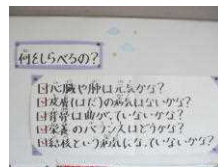 何をしらべるの?
心臓や肺は元気かな?
皮膚(はだ)の病気はないかな?
背骨は曲がっていないかな?
栄養のバランスはどうかな?
結核という病気になっていないかな?